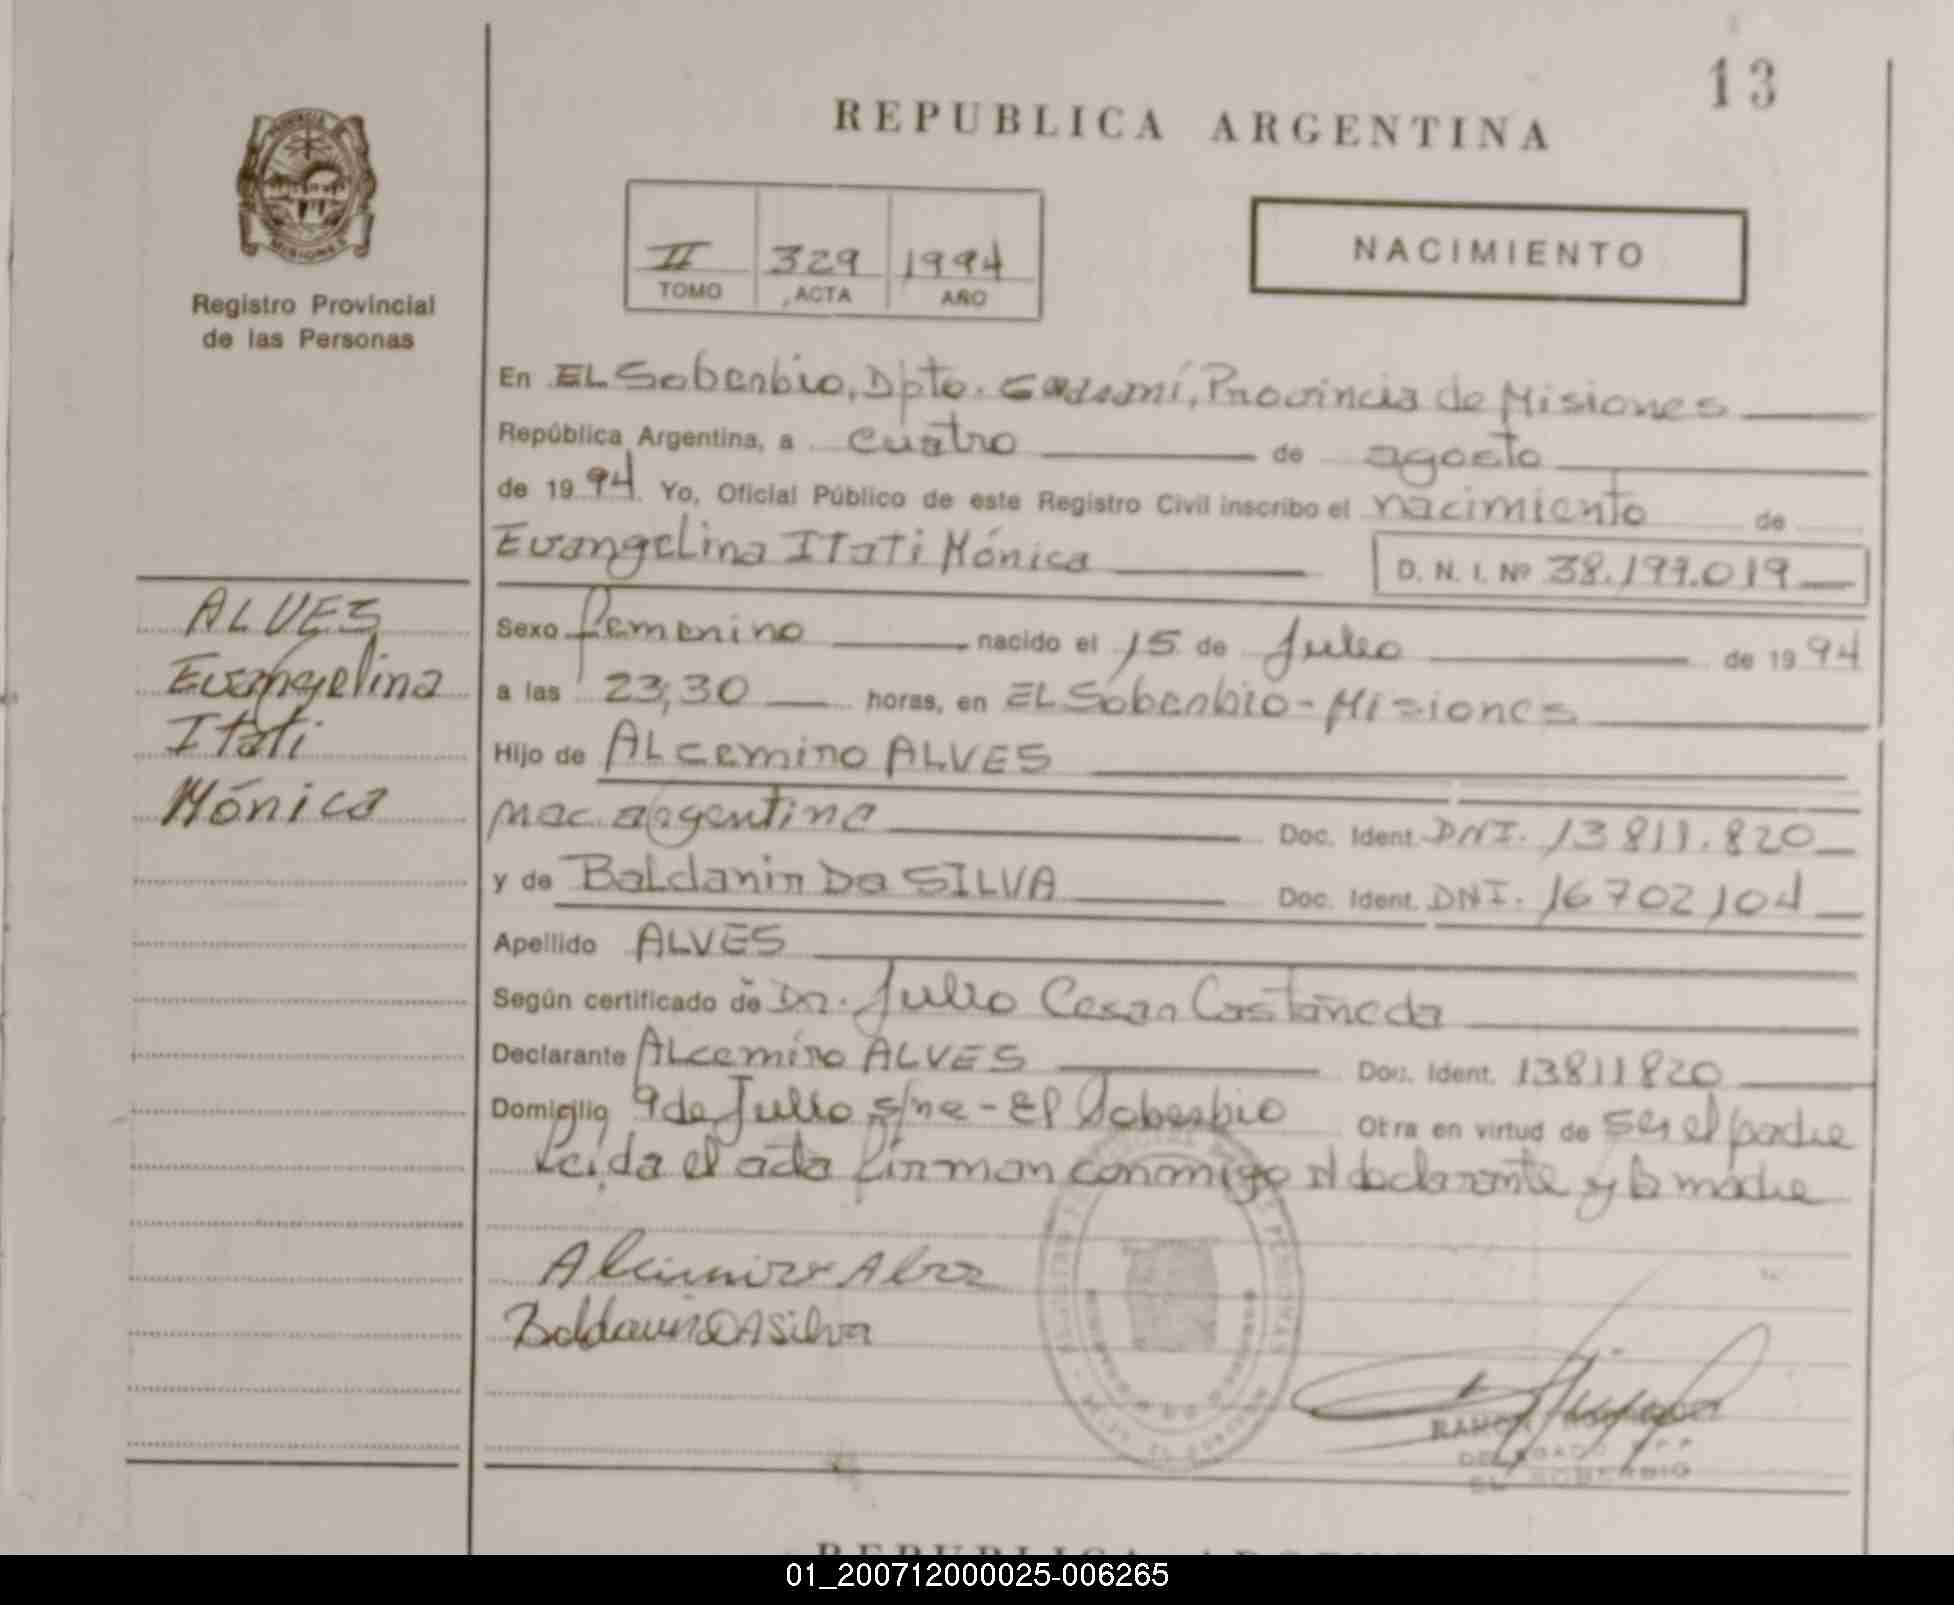 13
REPUBLICA ARGENTINA
PROVINCIA DE MISIONES
Registro Provincial
de las Personas
II 329 1994
TOMO ACTA AÑO
NACIMIENTO
En EL Soberbio, Dpto. Guaraní, Provincia de Misiones
República Argentina, a cuatro de agosto
de 1994 Yo, Oficial Público de este Registro Civil inscribo el nacimiento de
Evangelina Itati Mónica D. N. I. Nº 38.199.019
ALVES
Evangelina
Itati
Mónica
Sexo femenino nacido el 15 de Julio de 1994
a las 23,30 horas, en EL Soberbio - Misiones
Hijo de ALcemiro ALVES
nac. argentina Doc. Ident. DNI. 13811.820
y de Baldanir Da SILVA Doc. Ident. DNI. 16702104
Apellido ALVES
Según certificado de Dr. Julio Cesar Castañeda
Declarante ALcemiro ALVES Doc. Ident. 13811820
Domicilio 9 de Julio s/nº - El Soberbio Otra en virtud de ser el padre
Leida el acta firman conmigo el declarante y la madre
Alcemiro Alves
RAMON
DELEGADO R P P
EL SOBERBIO
REPUBLICA ARGENTINA
01_200712000025-006265